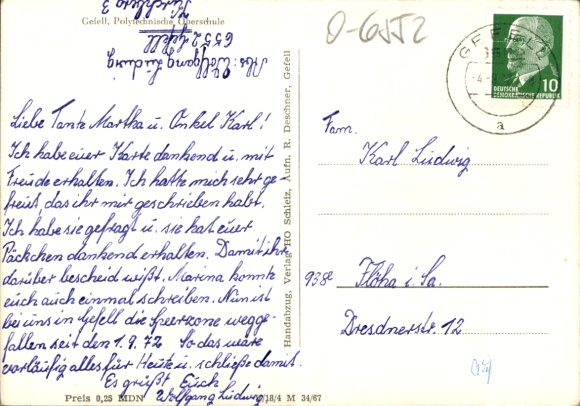 Gefell, Polytechnische Oberschule
0-6552
Abs: Wolfgang Ludwig
6552 Gefell
3
Liebe Tante Martha u. Onkel Karl!
Ich habe euer Karte dankend u. mit
Freude erhalten. Ich hatte mich sehr ge-
freut, das ihr mir geschrieben habt.
Ich habe sie gefragt u. sie hat euer
Päckchen dankend erhalten. Damit ihr
darüber bescheid wißt. Marina konnte
euch auch einmal schreiben. Nun ist
bei uns in Gefell die Speerzone wegge-
fallen seit den 1.9.72. So das wäre
vorläufig alles für Heute u. schließe damit.
Es grüßt Euch
Wolfgang Ludwig
Preis 0,25 MDN
18/4 M 34/67
Handabzug, Verlag HO Schleiz, Aufn. R. Deschner, Gefell
GEFELL
a
DEUTSCHE
DEMOKRATISCHE REPUBLIK
10
Fam.
Karl Ludwig
938 Flöha i. Sa.
Dresdnerstr. 12